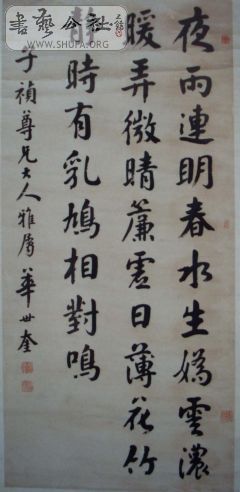 夜雨連明春水生嬌雲濃
暖弄微晴簾虛日薄花竹
靜時有乳鳩相對鳴
子禎尊兄大人雅屬 華世奎
書藝公社
WWW.SHUFA.ORG